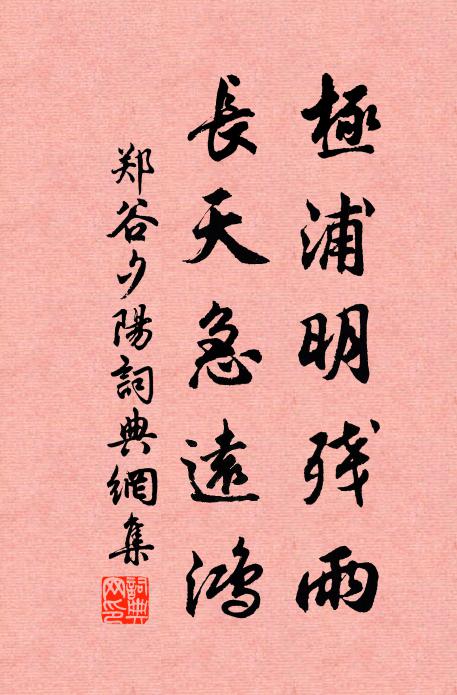 極浦明残雨
長天急遠鴻
郑谷夕陽詞典網集
詞典網印